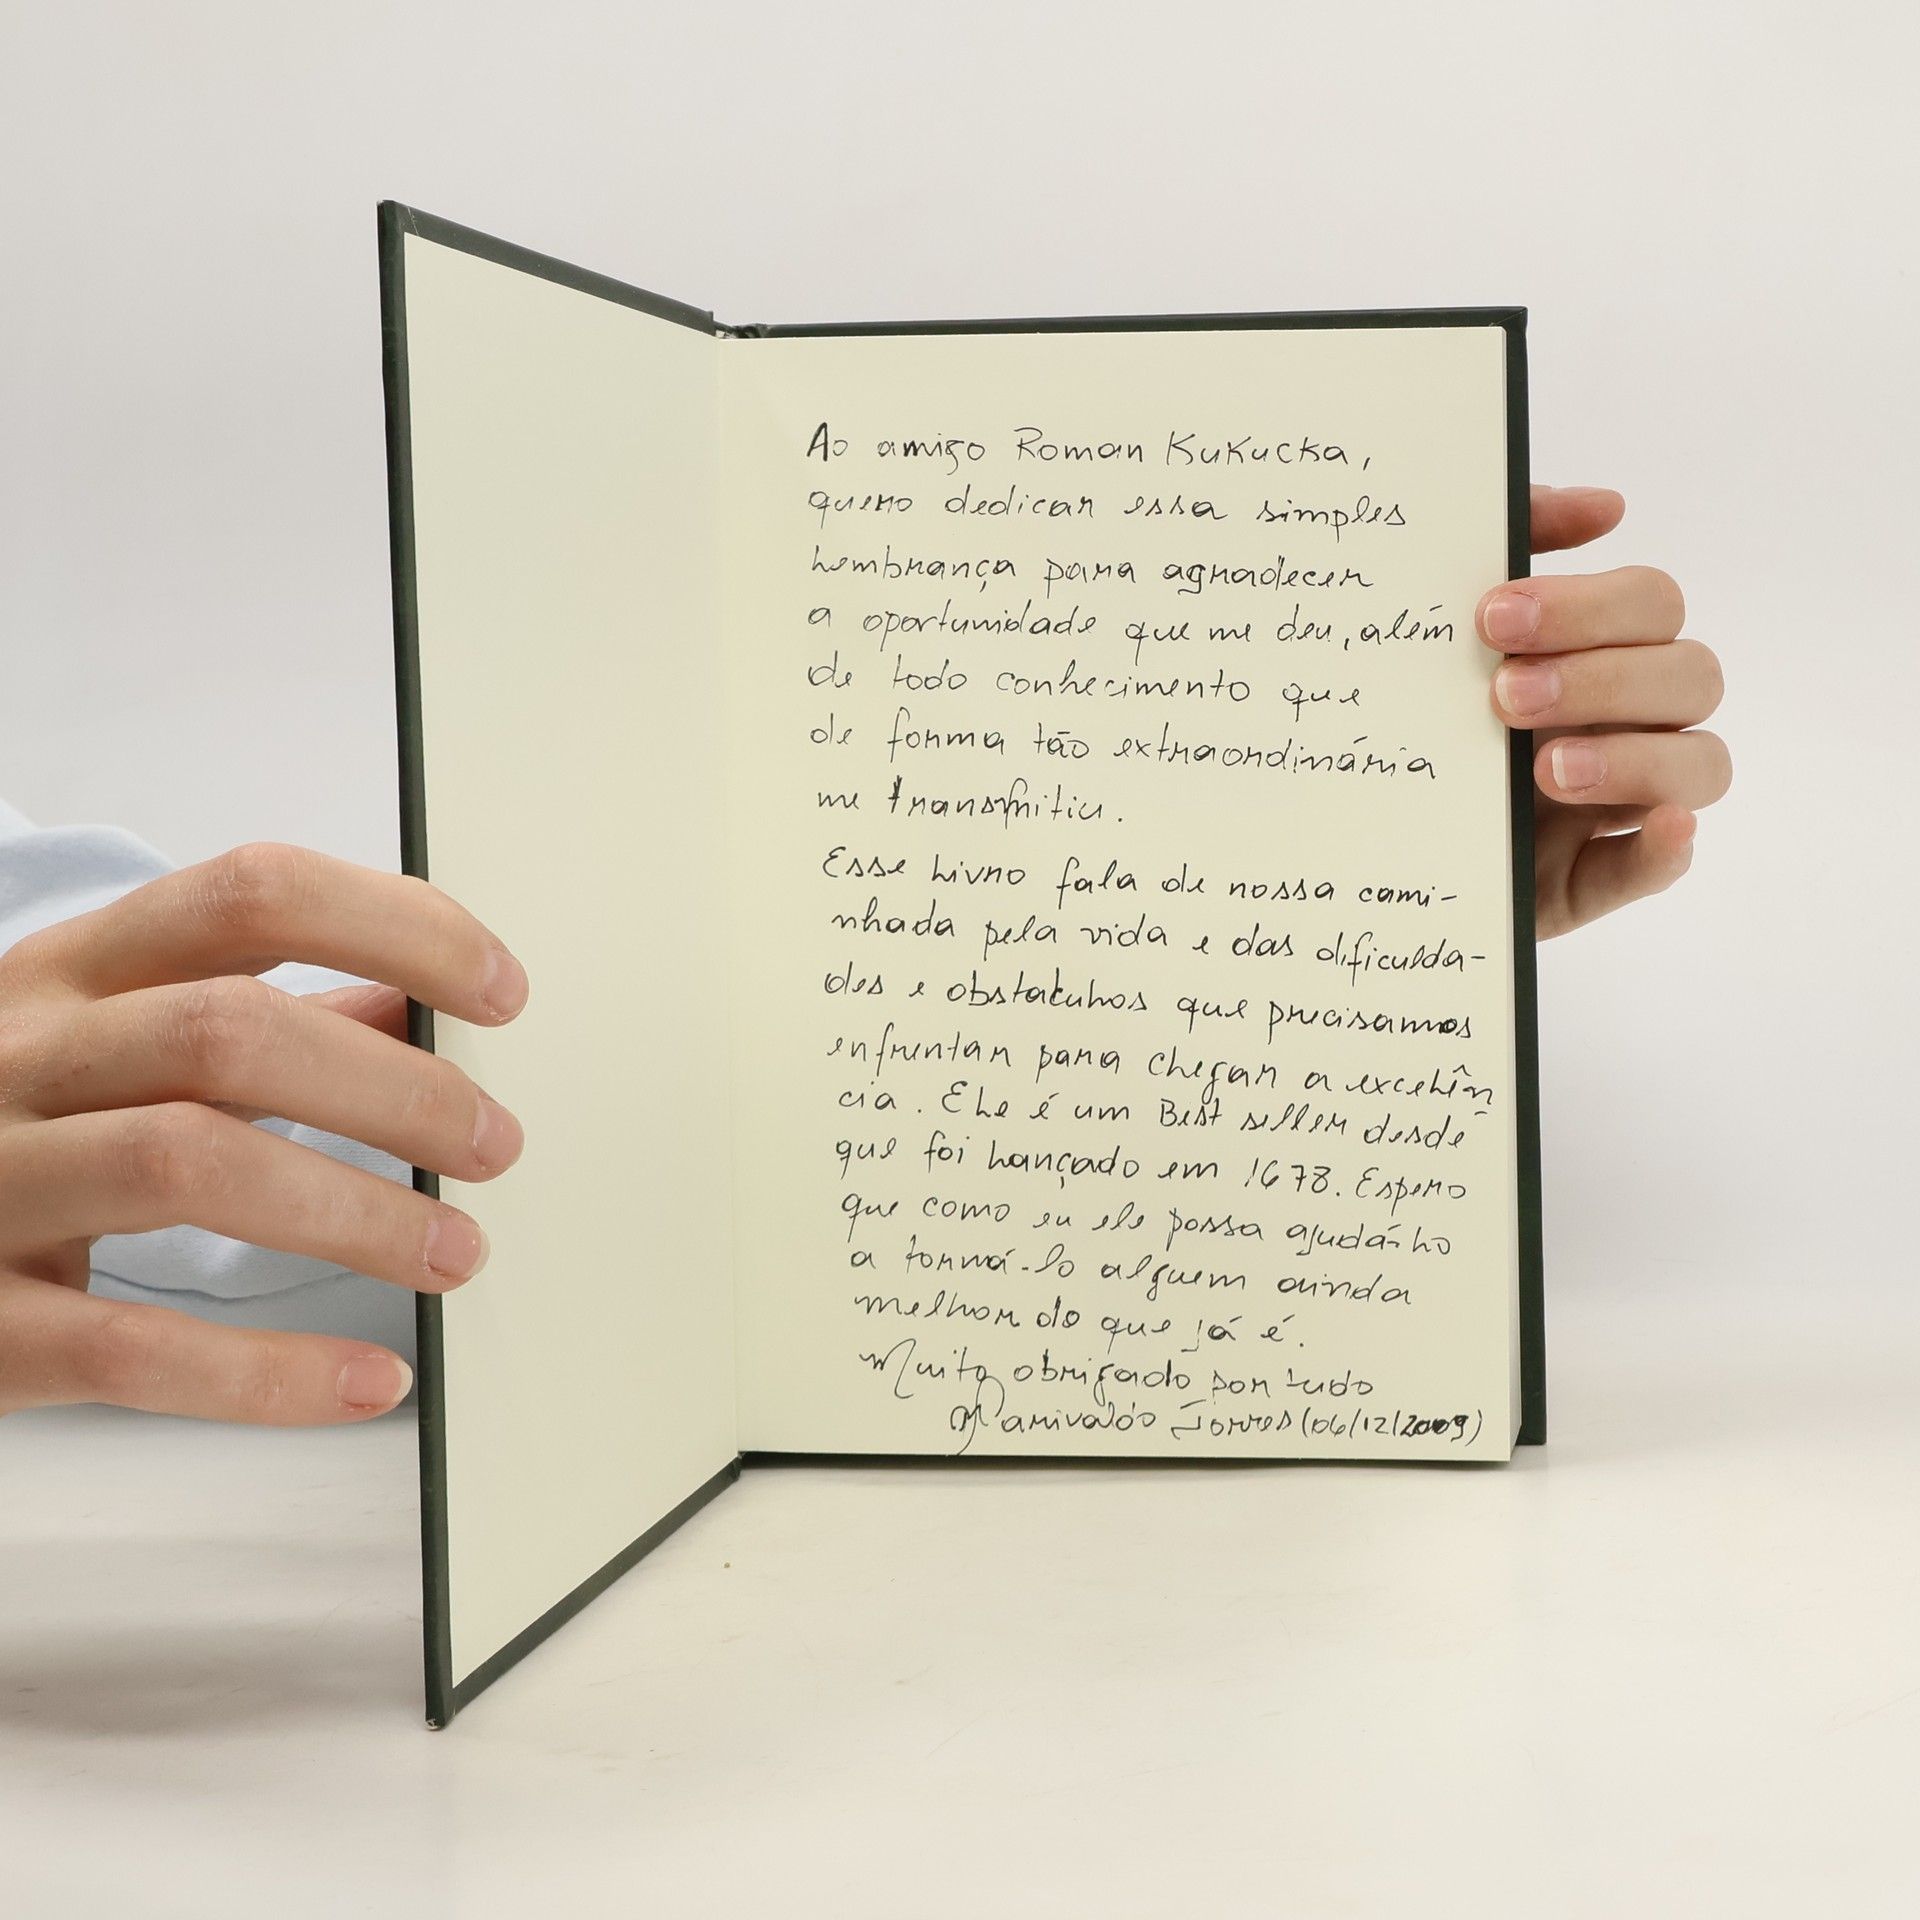 Ao amigo Roman Kukucka,
quero dedicar essa simples
lembrança para agradecer
a oportunidade que me deu, além
de todo conhecimento que
de forma tão extraordinária
me transmitiu.
Esse livro fala de nossa cami-
nhada pela vida e das dificulda-
des e obstakulos que precisamos
enfrentar para chegar a excelên
cia. Ele é um Best seller desde
que foi lançado em 1678. Espero
que como eu ele possa ajudá-lo
a torná-lo alguem ainda
melhor do que já é.
Muito obrigado por tudo
Marivaldo Torres (06/12/2009)